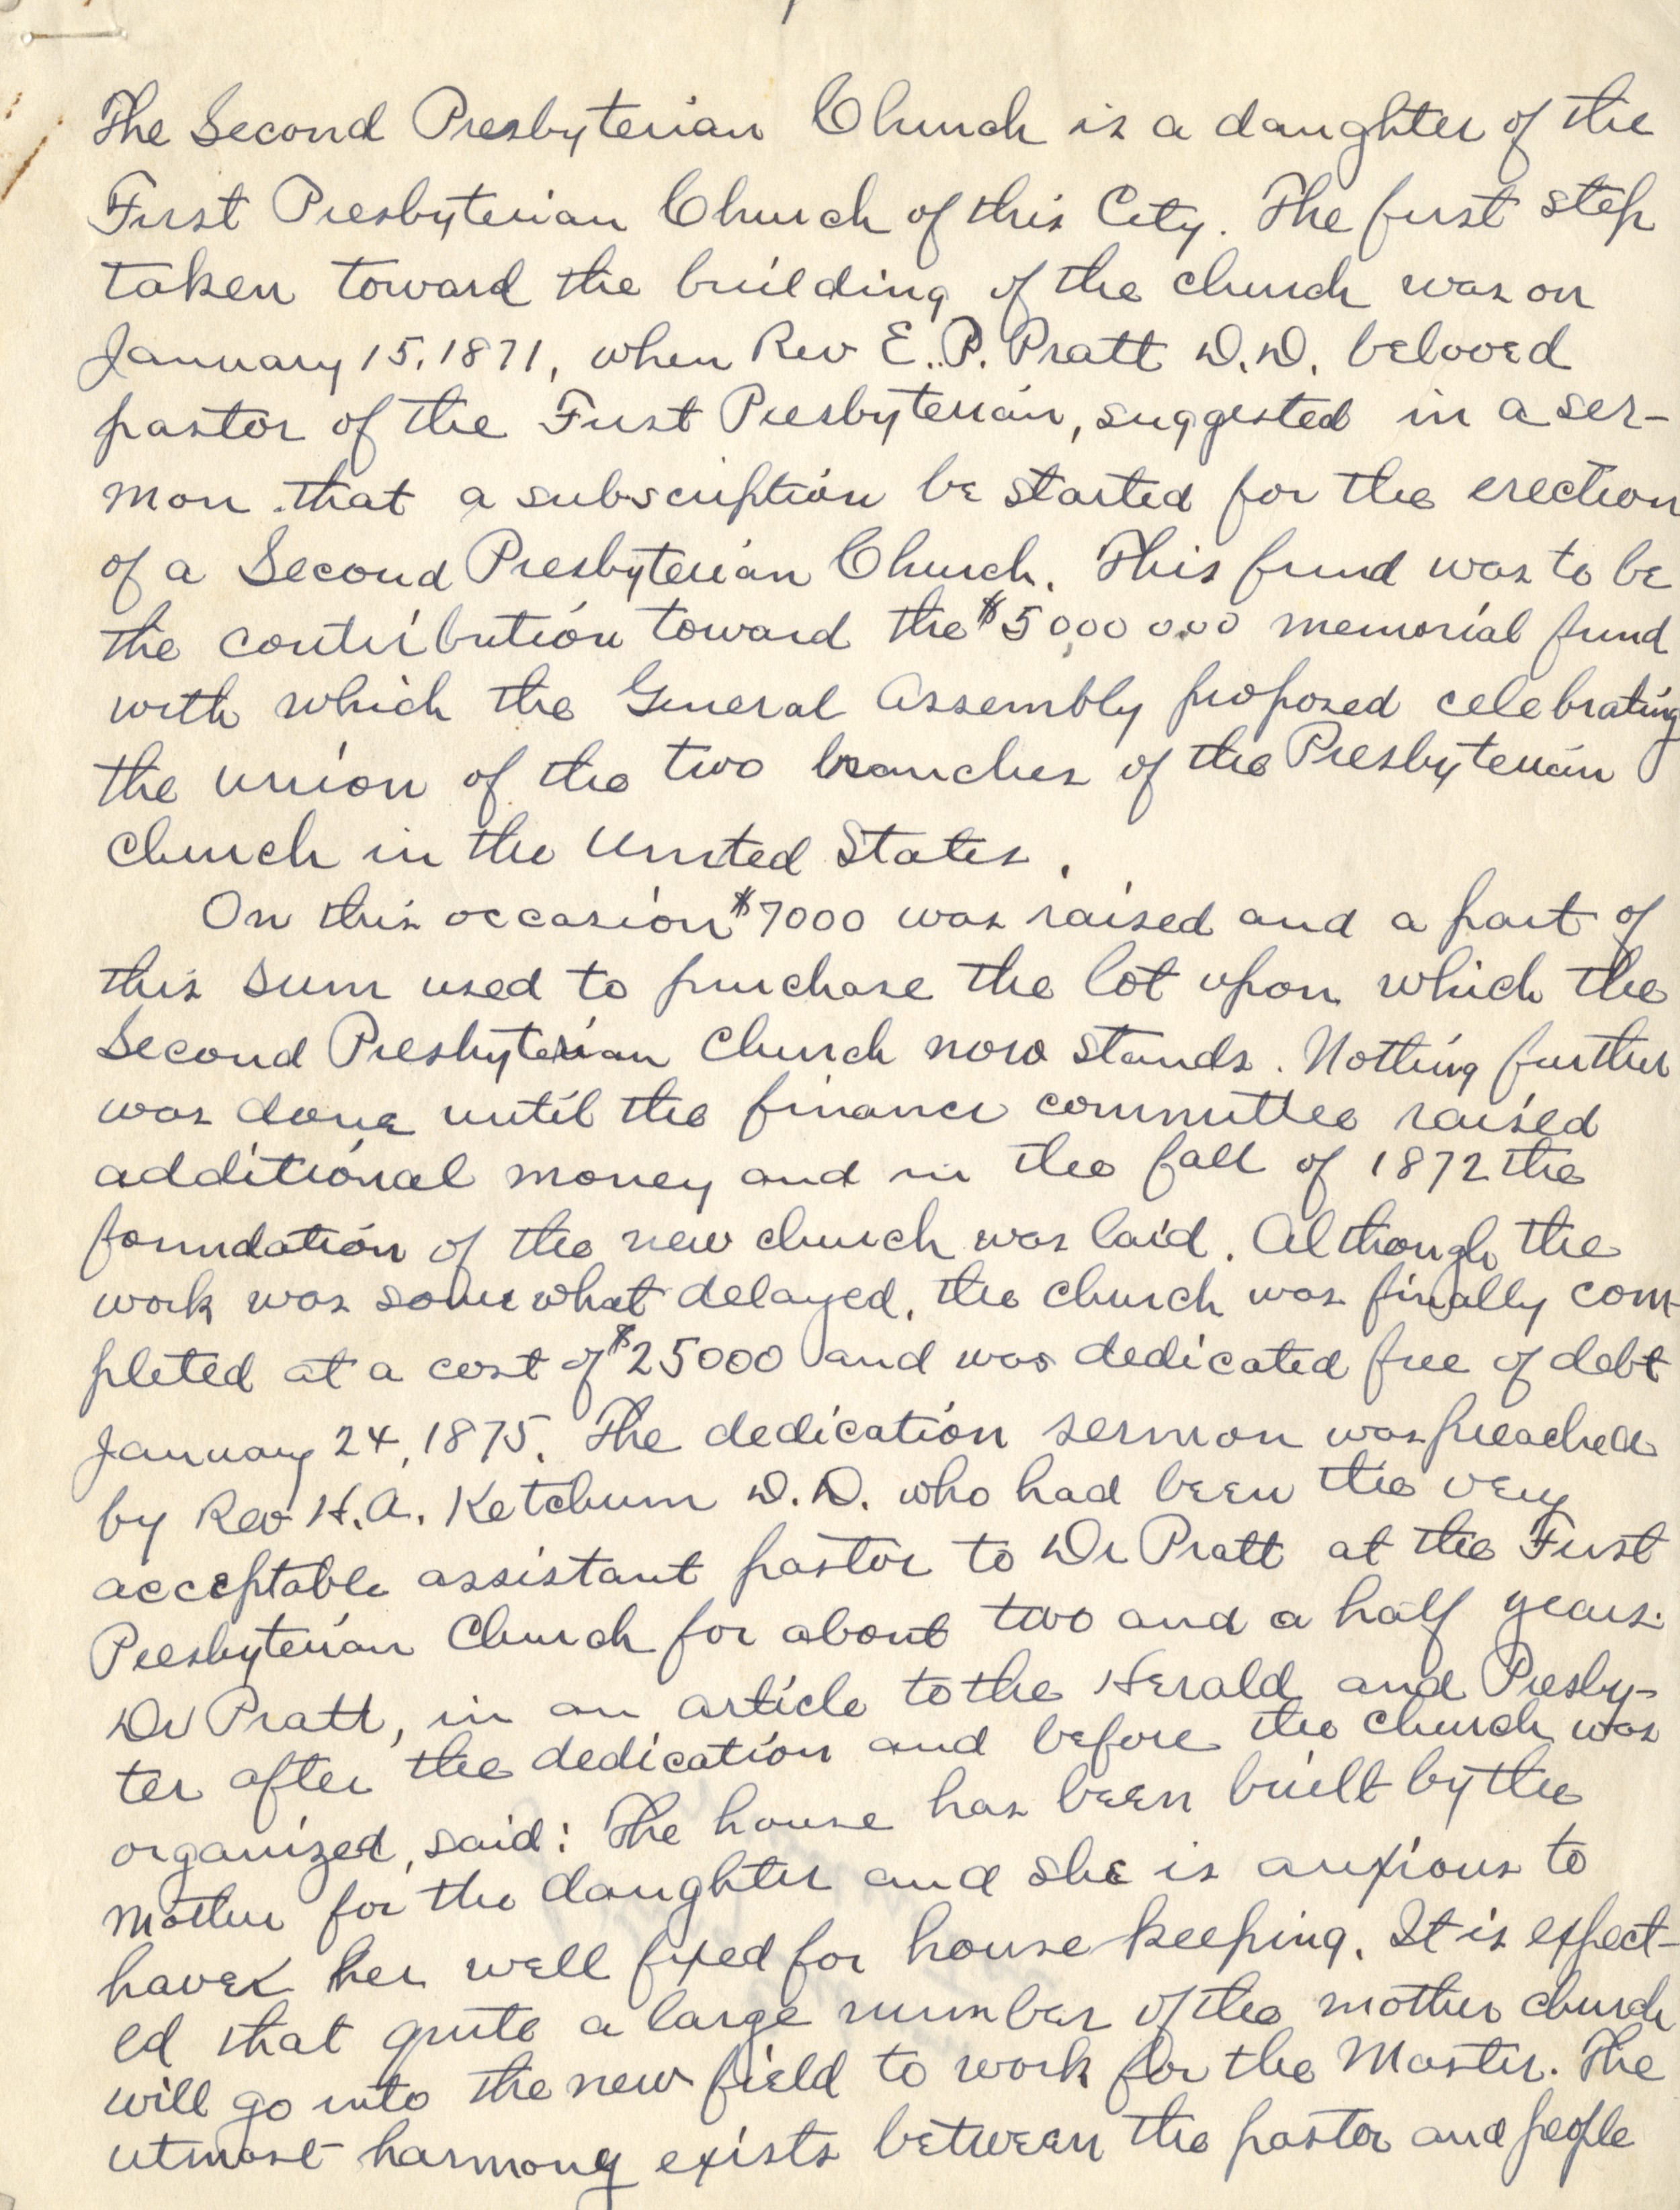 The Second Presbyterian Church is a daughter of the
First Presbyterian Church of this City. The first step
taken toward the building of the church was on
January 15, 1871, when Rev E. P. Pratt D.D. beloved
pastor of the First Presbyterian, suggested in a ser-
mon that a subscription be started for the erection
of a Second Presbyterian Church. This fund was to be
the contribution toward the $5,000,000 memorial fund
with which the General Assembly proposed celebrating
the union of the two branches of the Presbyterian
church in the United States.
On this occasion $7000 was raised and a part of
this sum used to purchase the lot upon which the
Second Presbyterian Church now stands. Nothing further
was done until the finance committee raised
additional money and in the fall of 1872 the
foundation of the new church was laid. Although the
work was somewhat delayed, the church was finally com-
pleted at a cost of $25000 and was dedicated free of debt
January 24, 1875. The dedication sermon was preached
by Rev. H. A. Ketchum D.D. who had been the very
acceptable assistant pastor to Dr Pratt at the First
Presbyterian Church for about two and a half years.
Dr Pratt, in an article to the Herald and Presby-
ter after the dedication and before the church was
organized, said: The house has been built by the
mother for the daughter and she is anxious to
have her well fixed for house keeping. It is expect-
ed that quite a large number of the mother church
will go into the new field to work for the Master. The
utmost harmony exists between the pastor and people